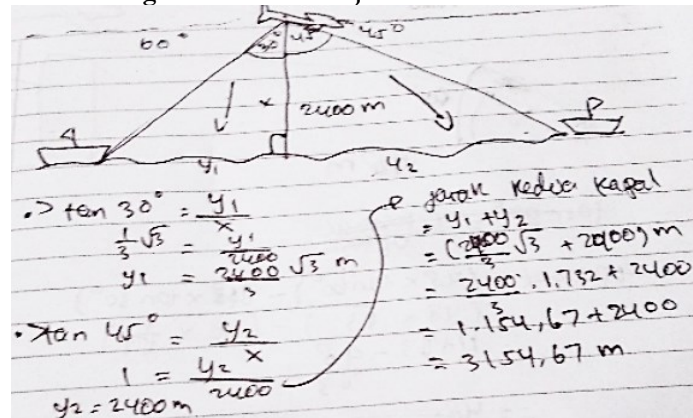 60°
30°
45°
45°
x
2400 m
A
P
y₁
y₂
•> tan 30° = y₁/x
1/3 √3 = y₁/2400
y₁ = 2400/3 √3 m
•> tan 45° = y₂/x
1 = y₂/2400
y₂ = 2400 m
jarak kedua kapal
= y₁ + y₂
= (2400/3 √3 + 2400) m
= 2400/3 . 1.732 + 2400
= 1.154,67 + 2400
= 3154,67 m